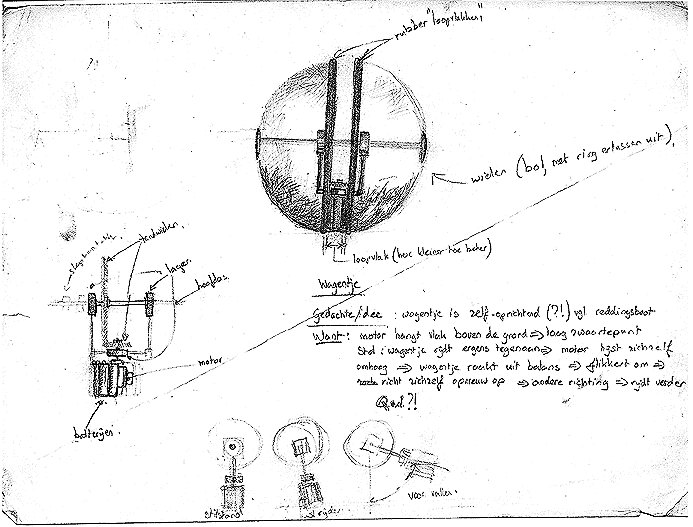 rubber "loopvlakken"
wielen (bol, met ring ertussen uit)
loopvlak (hoe kleiner hoe beter)
tandwielen.
lager.
hoofdas.
motor
batterijen.
Wagentje
Gedachte/idee : wagentje is zelf-oprichtend (?!) vgl reddingsboot
Want : motor hangt vlak boven de grond ⇒ laag zwaartepunt
Stel : wagentje rijdt ergens tegenaan ⇒ motor hijst zichzelf
omhoog ⇒ wagentje raakt uit balans ⇒ flikkert om ⇒
richt zichzelf opnieuw op ⇒ andere richting ⇒ rijdt verder
Q.e.d. ?!
stilstand
rijden
voor vallen.